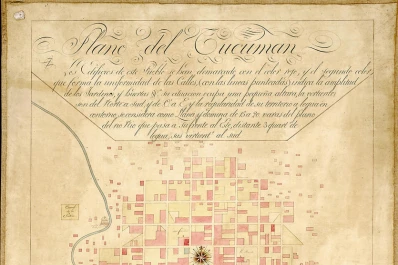 Plano del Tucuman
Los Edificios de este Pueblo se han demarcado con el color rojo, y el segundo color
que forma la uniformidad de las Calles, (con las lineas punteadas) indica la amplitud
de los Jardines, y Huertas &ª su situacion ocupa una pequeña altura, la vertientes
son del Norte a Sud, y de O. a E. y la regularidad de su territorio a legua en
contorno, se considera como Llano y domina de 15 a 20 varas del plano
del rio que pasa a su frente al Este, distante 3 quartˢ de
legua, sus vertientˢ al sud